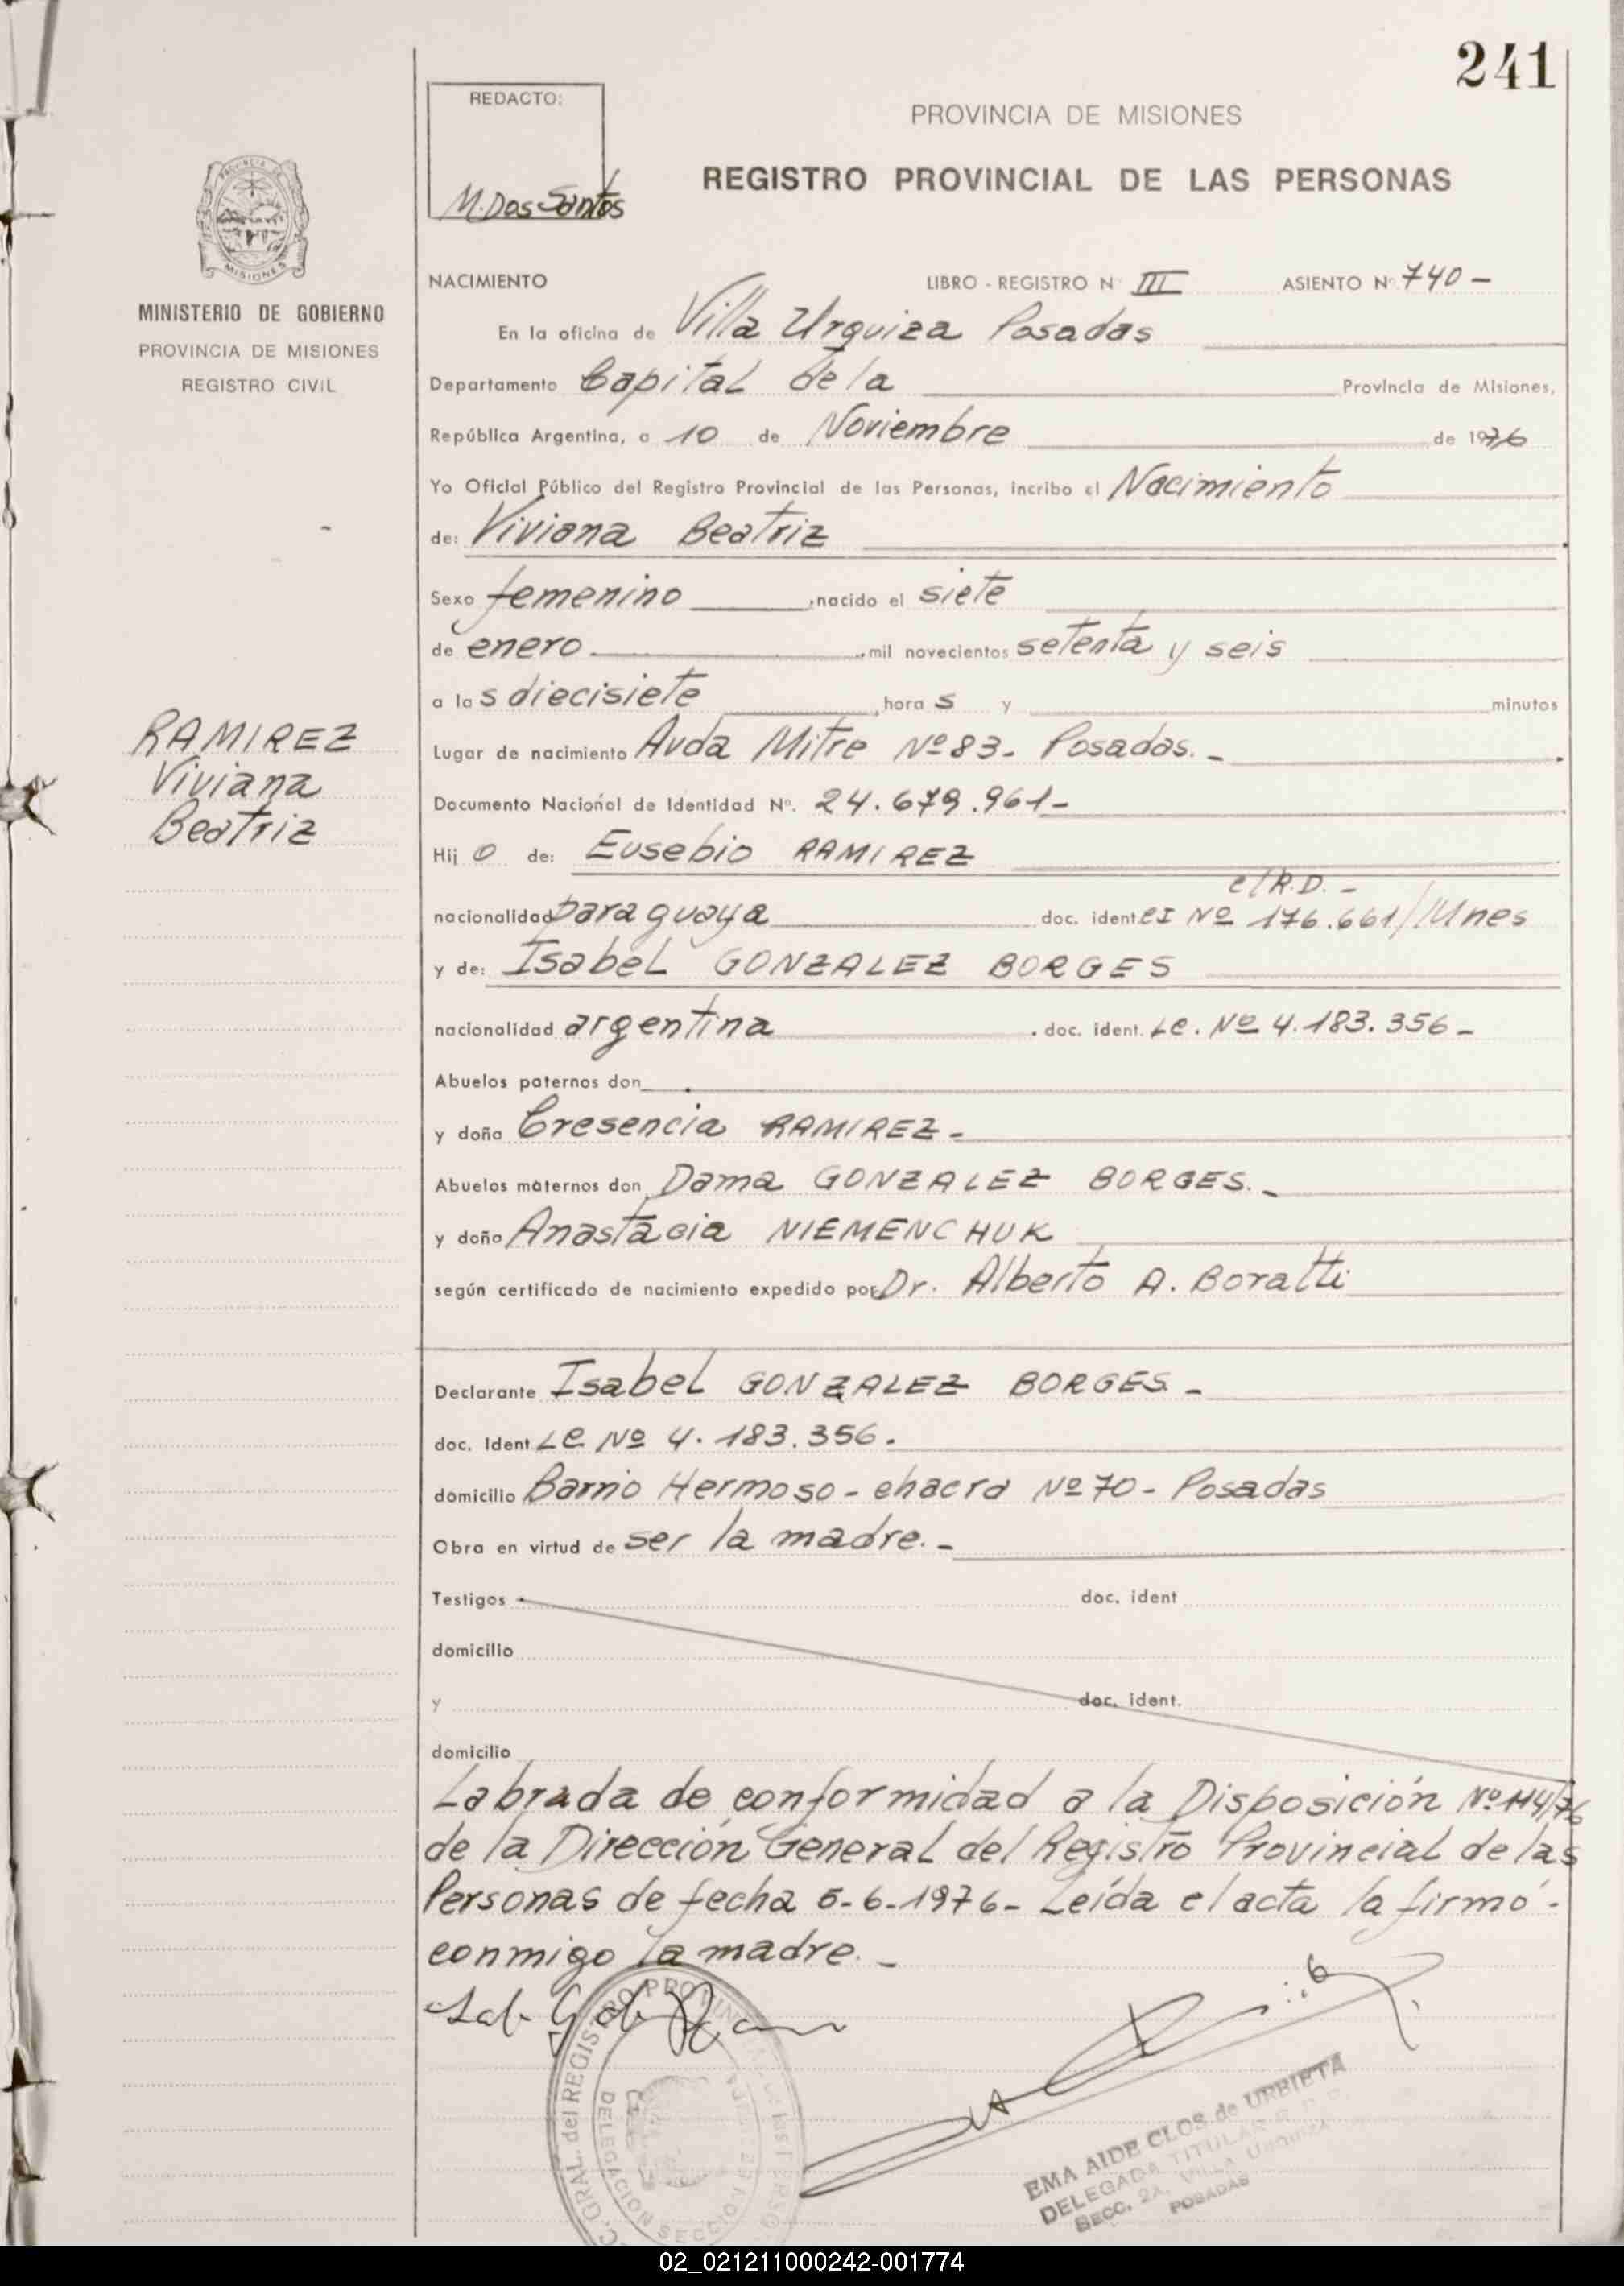 241
REDACTO:
M. Dos Santos
PROVINCIA DE MISIONES
REGISTRO PROVINCIAL DE LAS PERSONAS
MISIONES
MINISTERIO DE GOBIERNO
PROVINCIA DE MISIONES
REGISTRO CIVIL
NACIMIENTO LIBRO - REGISTRO N° III ASIENTO N° 740 -
En la oficina de Villa Urquiza Posadas
Departamento Capital de la Provincia de Misiones,
República Argentina, a 10 de Noviembre de 1976
Yo Oficial Público del Registro Provincial de las Personas, incribo el Nacimiento
de: Viviana Beatriz
Sexo femenino nacido el siete
de enero mil novecientos setenta y seis
a las diecisiete horas y minutos
RAMIREZ
Viviana
Beatriz
Lugar de nacimiento Avda Mitre Nº 83- Posadas.-
Documento Nacional de Identidad N°. 24.679.961-
Hijo de: Eusebio RAMIREZ
c/R.D. -
nacionalidad paraguaya doc. ident. CI Nº 176.661/Mnes
y de: Isabel GONZALEZ BORGES
nacionalidad argentina doc. ident. LC. Nº 4.183.356-
Abuelos paternos don
y doña Cresencia RAMIREZ-
Abuelos maternos don Dama GONZALEZ BORGES.-
y doña Anastacia NIEMENCHUK
según certificado de nacimiento expedido por Dr. Alberto A. Boratti
Declarante Isabel GONZALEZ BORGES-
doc. Ident. LC Nº 4.183.356.
domicilio Barrio Hermoso - chacra Nº 70 - Posadas
Obra en virtud de ser la madre.-
Testigos doc. ident
domicilio
y doc. ident.
domicilio
Labrada de conformidad a la Disposición Nº 114/76
de la Dirección General del Registro Provincial de las
Personas de fecha 5-6-1976- Leída el acta la firmó-
conmigo la madre.-
GRAL. del REGISTRO PROVINCIAL de las PERSO
DELEGACION SECCION
EMA AIDE CLOS de URBIETA
DELEGADA TITULAR R. P.
SECC. 2A. VILLA URQUIZA
POSADAS
02_021211000242-001774